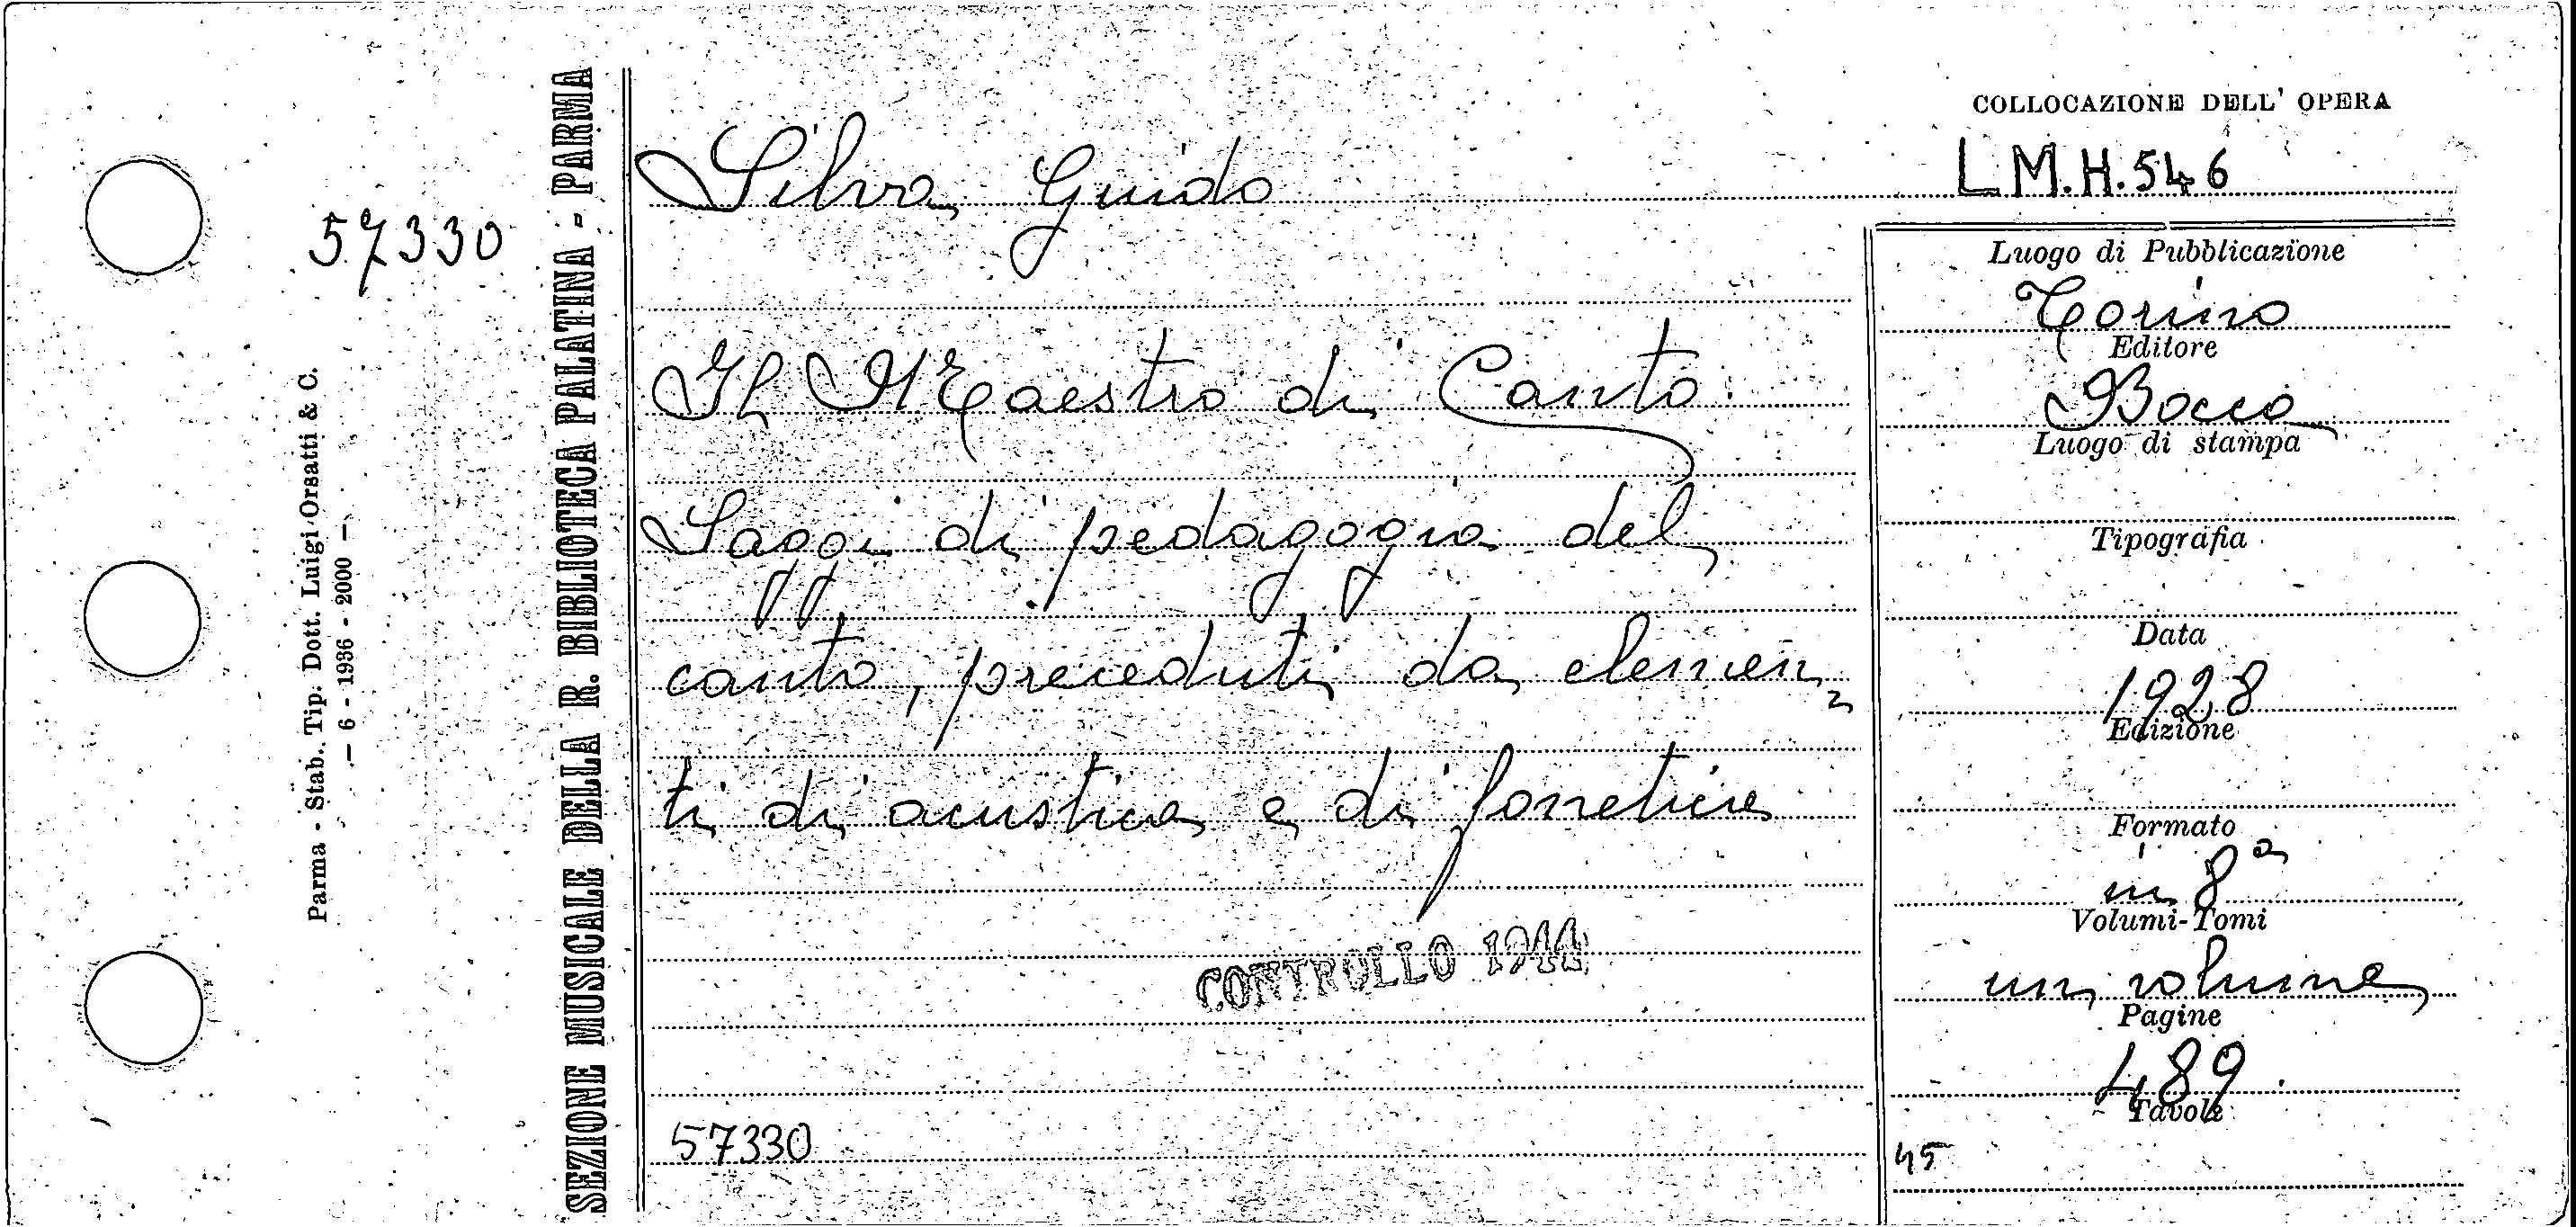 COLLOCAZIONE DELL' OPERA
L M.H.546
57330
Parma - Stab. Tip. Dott. Luigi Orsatti & C.
— 6 - 1936 - 2000 —
SEZIONE MUSICALE DELLA R. BIBLIOTECA PALATINA - PARMA
Silva Guido
Il Maestro di Canto
Saggi di pedagogia del
canto, preceduti da elemen
ti di acustica e di fonetica
CONTROLLO 1944
57330
Luogo di Pubblicazione
Torino
Editore
Bocca
Luogo di stampa
Tipografia
Data
1928
Edizione
Formato
in 8°
Volumi-Tomi
un volume
Pagine
489
Tavole
45